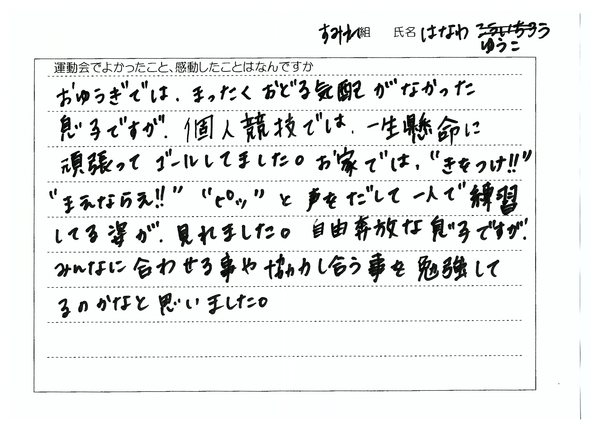 すみれ組 氏名 はなわ ゆうこ
運動会でよかったこと、感動したことはなんですか
おゆうぎでは、まったくおどる気配がなかった
息子ですが、個人競技では、一生懸命に
頑張ってゴールしてました。お家では、“きをつけ!!”
“まえならえ!!” “ピッ” と声をだして一人で練習
してる姿が、見れました。自由奔放な息子ですが、
みんなに合わせる事や協力し合う事を勉強して
るのかなと思いました。